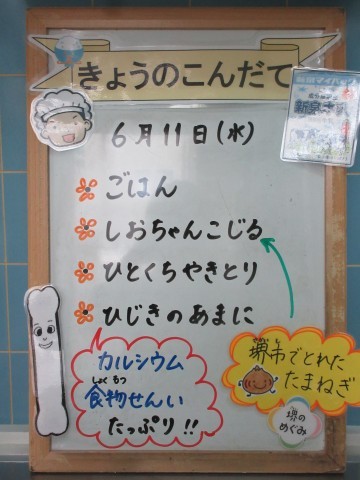 きょうのこんだて
6月11日(水)
ごはん
しおちゃんこじる
ひとくちやきとり
ひじきのあまに
カルシウム
しょくもつ
食物せんい
たっぷり!!
堺市でとれた
たまねぎ
堺の
めぐみ